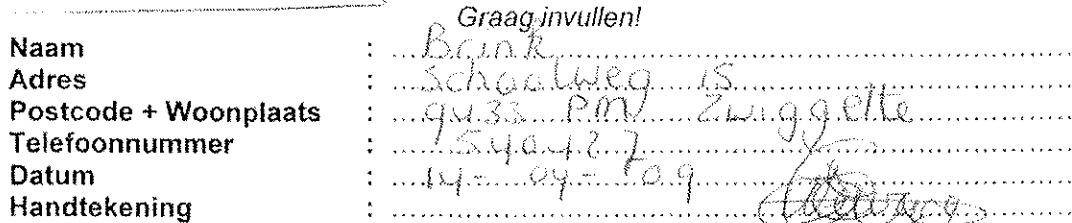 Graag invullen!
Naam : Brink
Adres : Schoolweg 15
Postcode + Woonplaats : 9433 PM Zwiggelte
Telefoonnummer : 540427
Datum : 14-04-09
Handtekening :